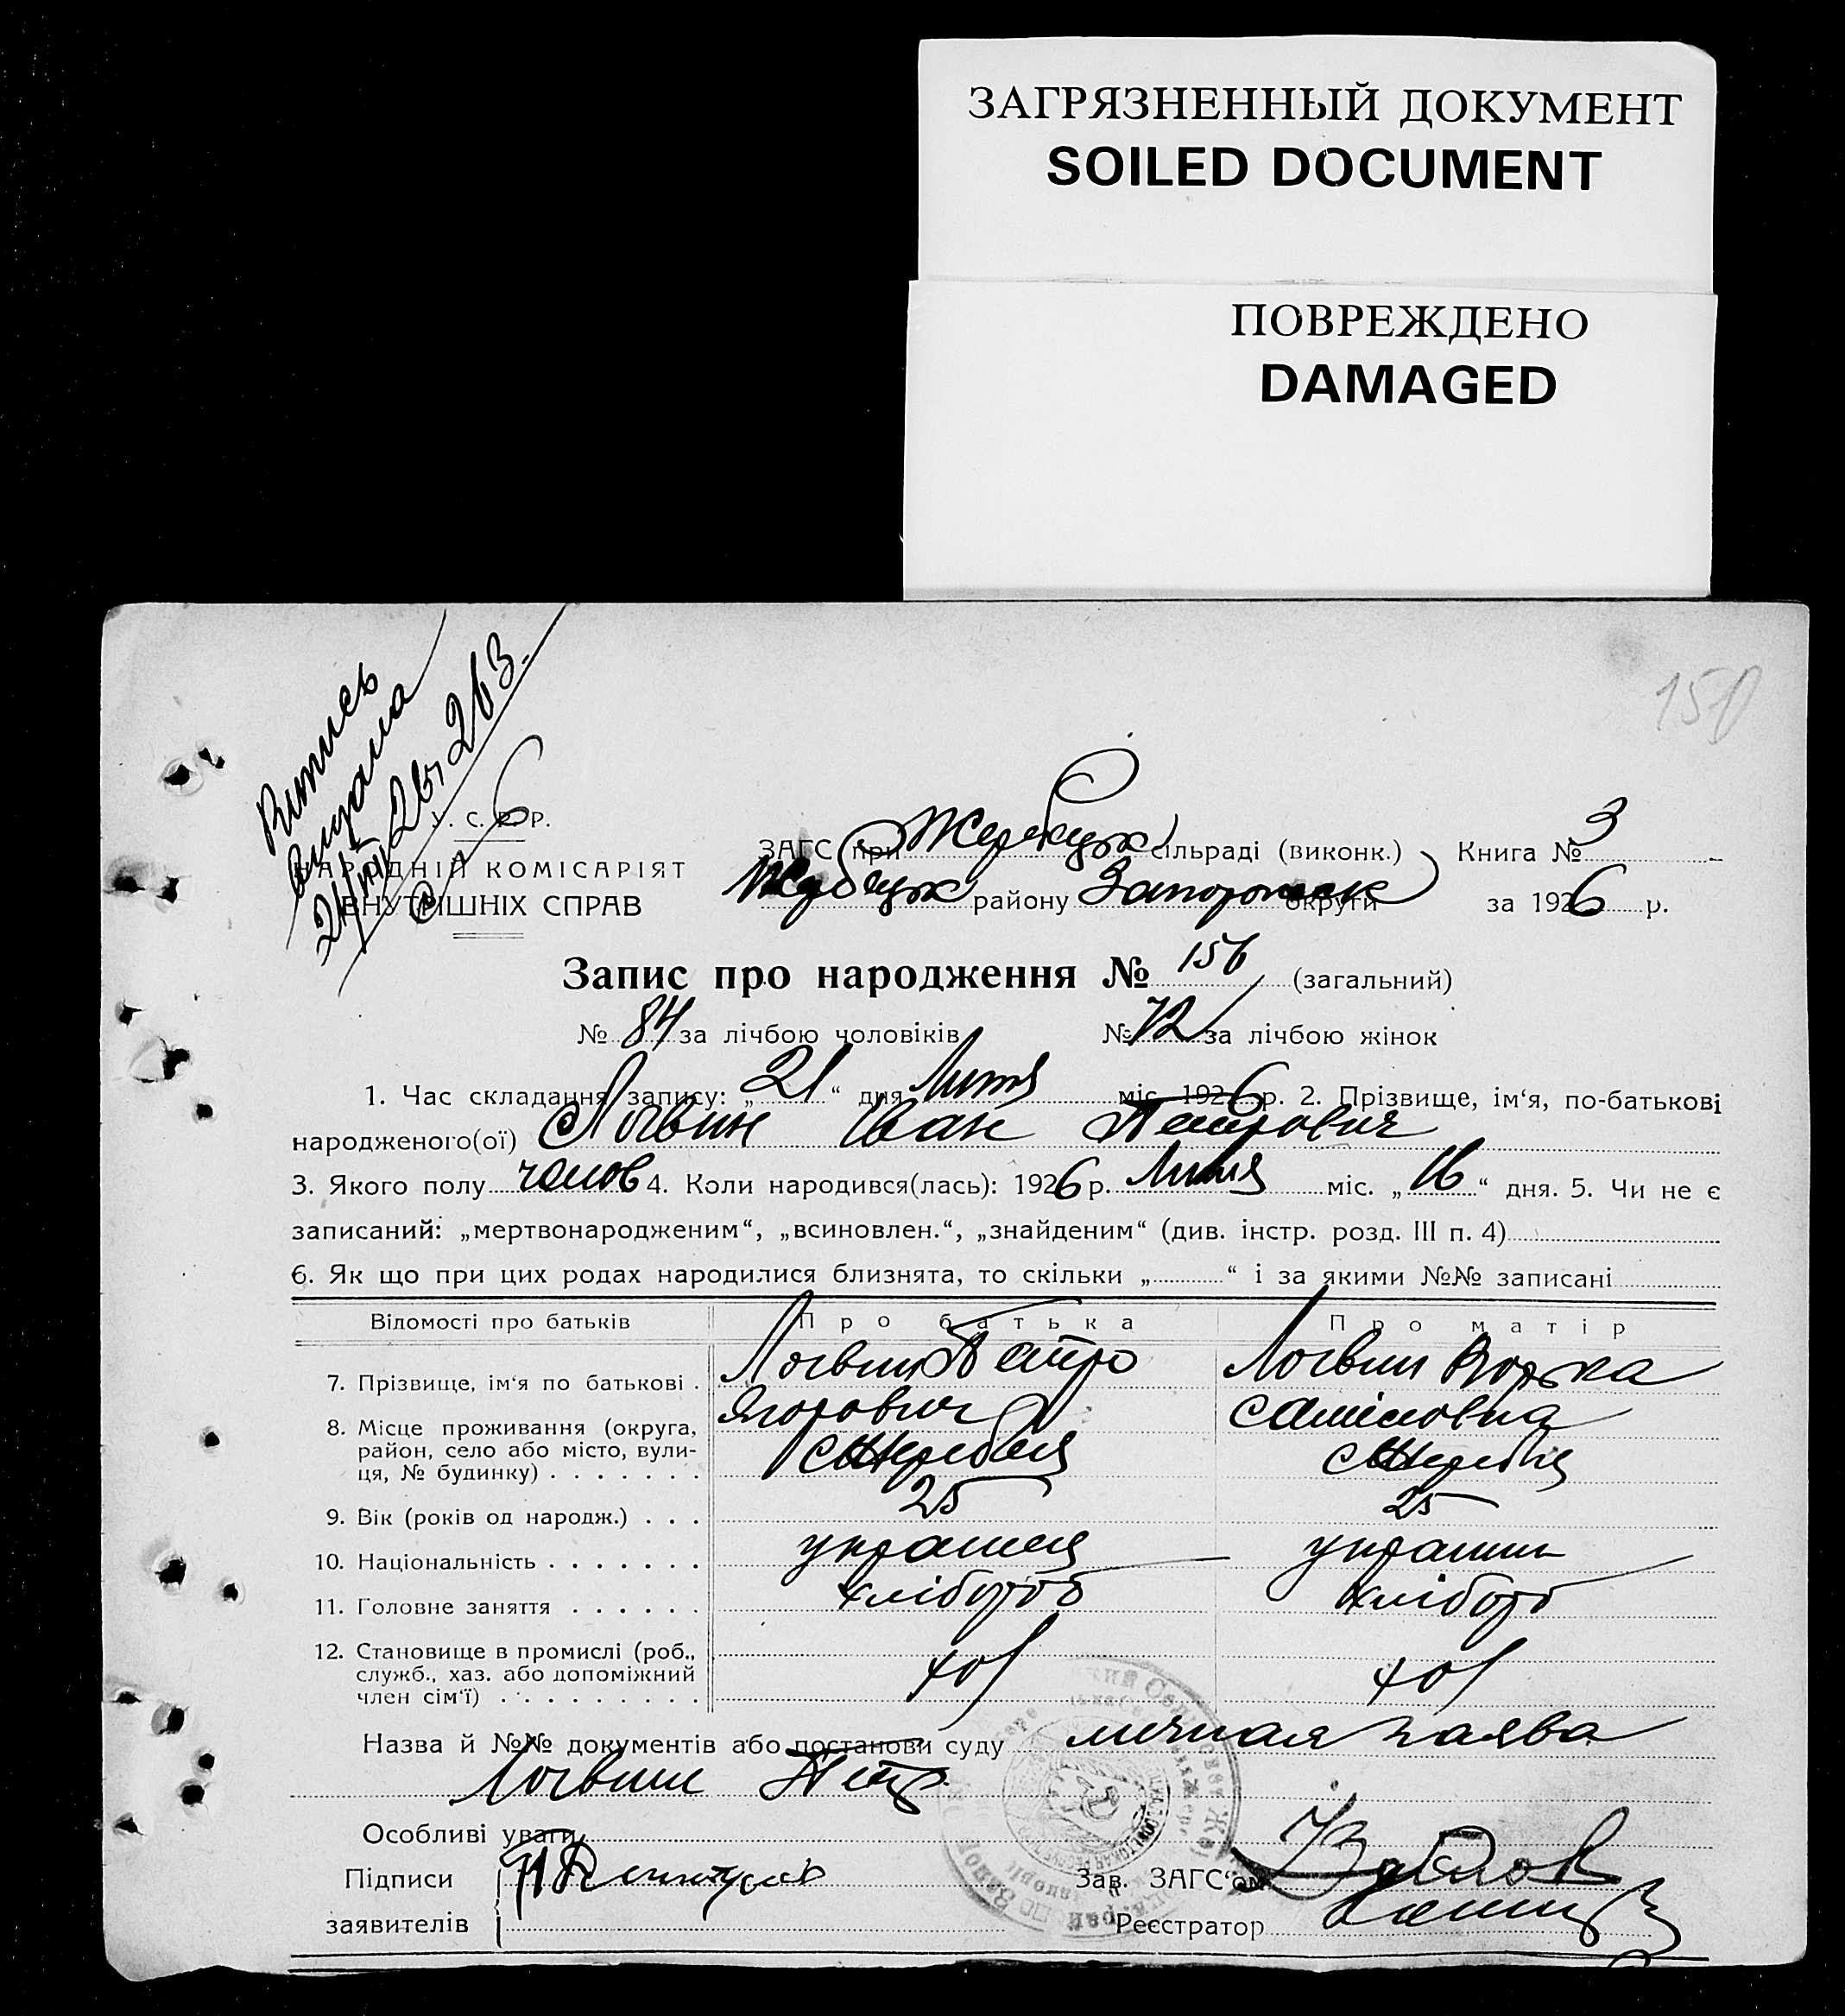 ЗАГРЯЗНЕННЫЙ ДОКУМЕНТ
SOILED DOCUMENT
ПОВРЕЖДЕНО
DAMAGED
150
263
У. С. Р. Р.
НАРОДНІЙ КОМІСАРІЯТ
ВНУТРІШНІХ СПРАВ
ЗАГС при Жеребецьк сільраді (виконк.) Книга № 3
Жеребецьк району Запорожск округи за 1926 р.
Запис про народження № 156 (загальний)
№ 84 за лічбою чоловіків № 72 за лічбою жінок
1. Час складання запису: „ 21 “ дня Липня міс. 1926 р. 2. Прізвище, ім‘я, по-батькові
народженого(ої) Логвин Іван Петрович
3. Якого полу чолов 4. Коли народився(лась): 1926 р. Липня міс. „ 16 “ дня. 5. Чи не є
записаний: „мертвонародженим“, „всиновлен.“, „знайденим“ (див. інстр. розд. III п. 4)
6. Як що при цих родах народилися близнята, то скільки „ “ і за якими №№ записані
Відомості про батьків Про батька Про матір
7. Прізвище, ім‘я по батькові . Логвин Петро Логвин
Ягорович
8. Місце проживання (округа, район, село або місто, вулиця, № будинку) . . . . . . . с Жеребец с Жеребец
9. Вік (років од народж.) . . . 25 25
10. Національність . . . . . . . украинец украин
11. Головне заняття . . . . . . хлібороб хлібороб
12. Становище в промислі (роб., служб., хаз. або допоміжний член сім‘ї) . . . . . . . . . хоз хоз
Назва й №№ документів або постанови суду личная заява
Логвин Петр
Особливі уваги
Підписи
заявителів
Зав. ЗАГС‘ом
Реєстратор